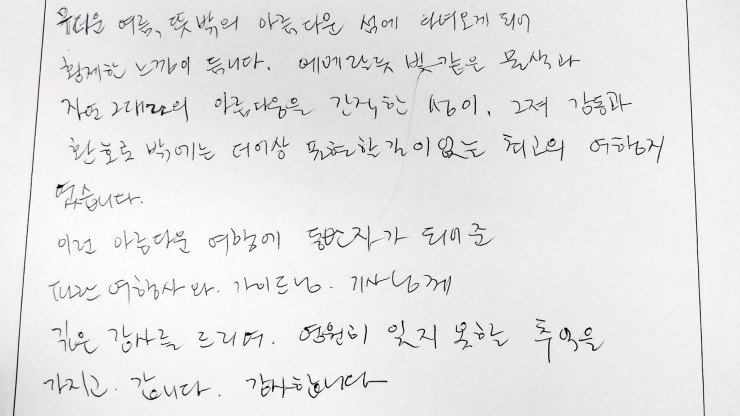 무더운 여름, 뜻밖의 아름다운 섬에 다녀오게 되어
황제한 느낌이 듭니다. 에메랄드 빛 같은 물색과
자연 그대로의 아름다움을 간직한 섬이, 그저 감동과
환호로 밖에는 더이상 표현할 길이 없는 최고의 여행지
였습니다.
이런 아름다운 여행에 동반자가 되어준
여행사와. 가이드님. 기사님께
깊은 감사를 드리며. 영원히 잊지 못할 추억을
가지고. 갑니다. 감사합니다